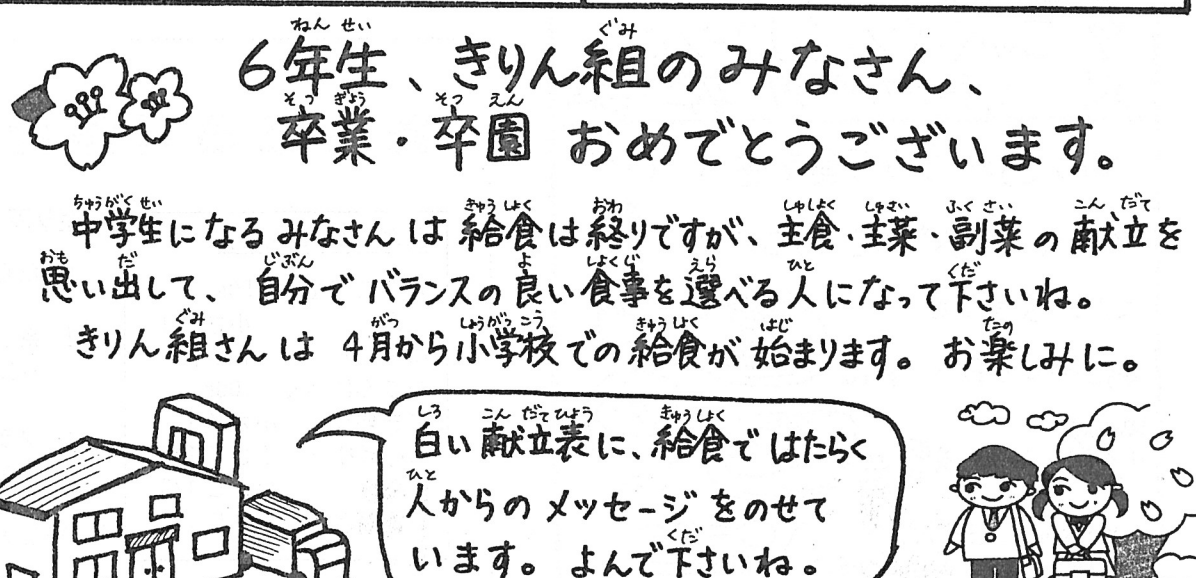 6年生、きりん組のみなさん、
卒業・卒園 おめでとうございます。
中学生になるみなさんは給食は終りですが、主食・主菜・副菜の献立を
思い出して、自分でバランスの良い食事を選べる人になって下さいね。
きりん組さんは4月から小学校での給食が始まります。お楽しみに。
白い献立表に、給食ではたらく
人からのメッセージをのせて
います。よんで下さいね。